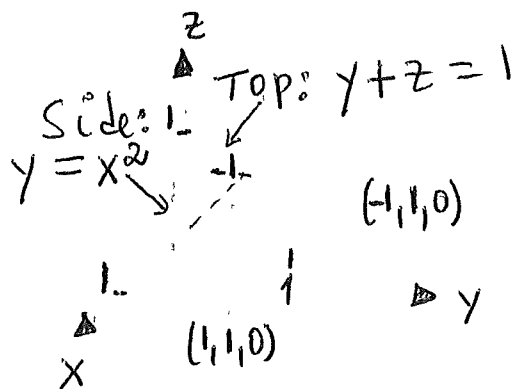 z
Top: y+z=1
Side: 1
y=x²
-1
(-1,1,0)
1
1
y
(1,1,0)
x